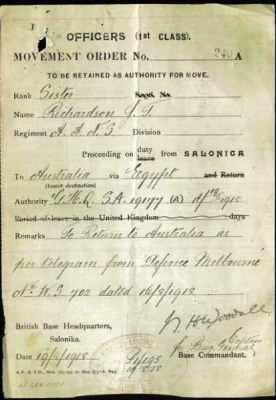 OFFICERS (1st CLASS).
MOVEMENT ORDER No. A
TO BE RETAINED AS AUTHORITY FOR MOVE.
Rank Sister Regtl. No.
Name Richardson
Regiment A.A.N.S Division
Proceeding on duty leave from SALONICA
To Australia via Egypt and Return
(insert destination)
Authority G.H.Q. S.A. 19177 (A)
Period of leave in the United Kingdom days
Remarks To Return to Australia as
per telegram from Defence Melbourne
No. W.S 702 dated 16/8/1918
British Base Headquarters,
Salonika. Captain
for Brig. General
Base Commandant.
Date 19/8/1918